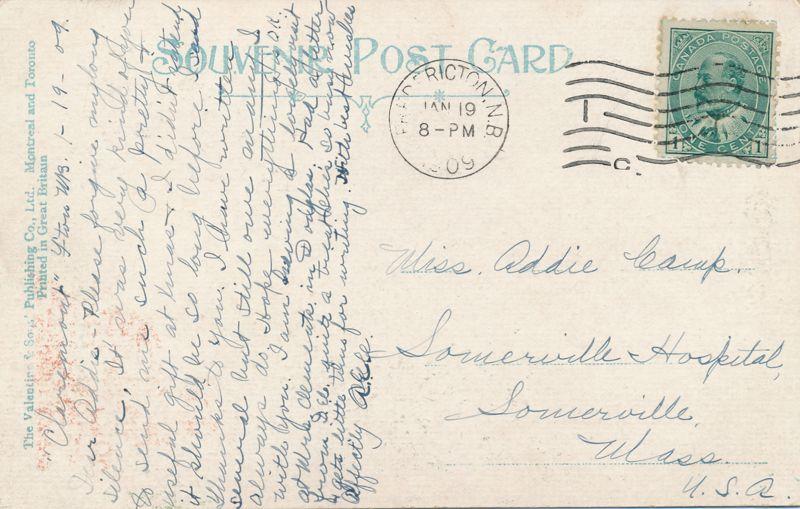 The Valentine & Sons' Publishing Co., Ltd. Montreal and Toronto
Printed in Great Britain
SOUVENIR POST CARD
FREDERICTON, N.B.
JAN 19
8-PM
1909
1
C.
CANADA POSTAGE
ONE CENT
1 1
"Claremont" F'ton N.B. 1-19-09.
Dear Addie - Please forgive my long
silence. It was very kind of you
to send me such a pretty &
useful gift at Xmas - I didn't intend
it should be so long before I said
thanks to you. I have written
several but still owe and I
always do. Hope everything O.K.
with you. I am having a good visit
at Mrs. Clements in Douglas. Had a letter
from
gets little time for writing. With best wishes
Affectly
Miss. Addie Camp.
Somerville Hospital,
Somerville,
Mass.
U.S.A.